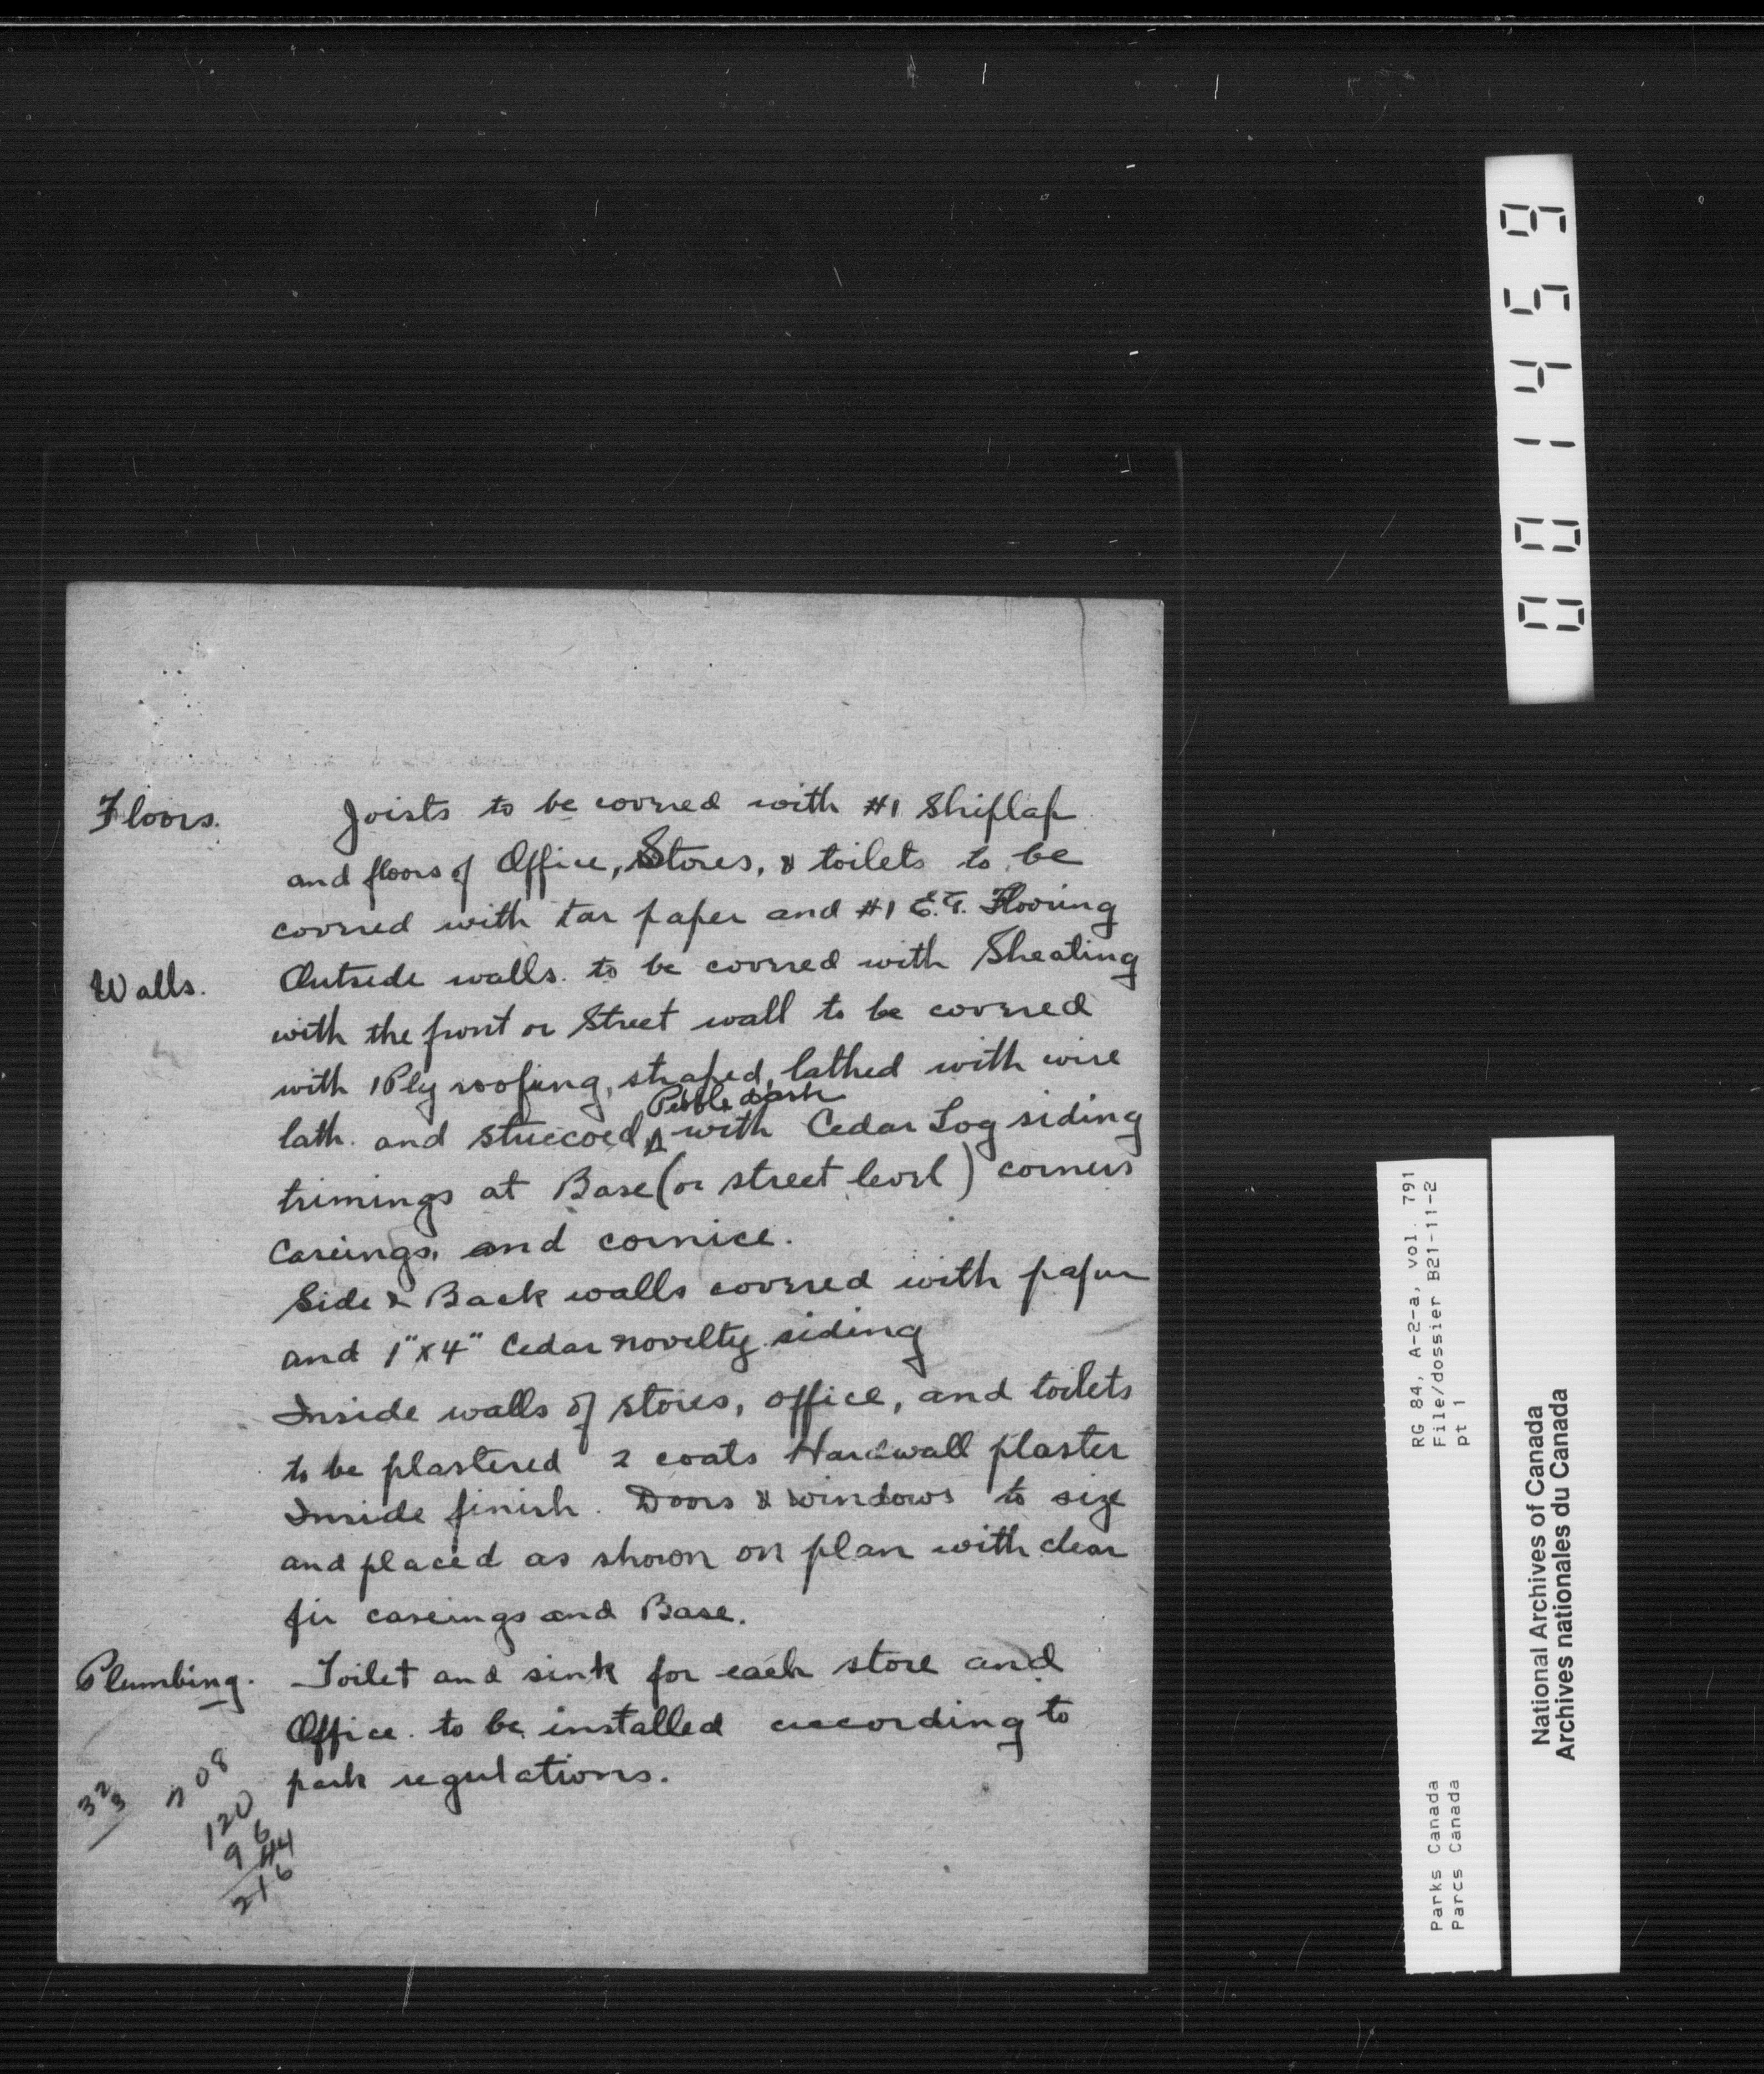 Floors. Joists to be covered with #1 Shiplap
and floors of Office, Stores, & toilets to be
covered with tar paper and #1 E.G. Flooring
Walls. Outside walls. to be covered with Sheating
with the front or Street wall to be covered
with 1 Ply roofing, straped, lathed with wire
Pebble dash
lath. and stuccoed with Cedar Log siding
trimings at Base (or street level) corners
Caseings, and cornice.
Side & Back walls covered with paper
and 1" x 4" Cedar novelty siding
Inside walls of stores, office, and toilets
to be plastered 2 coats Hardwall plaster
Inside finish. Doors & windows to size
and placed as shown on plan with clear
fir caseings and Base.
Plumbing. Toilet and sink for each store and
Office. to be installed according to
park regulations.
32
3
08
120
96
216
001459
RG 84, A-2-a, vol. 791
File/dossier B21-11-2
pt 1
Parks Canada
Parcs Canada
National Archives of Canada
Archives nationales du Canada